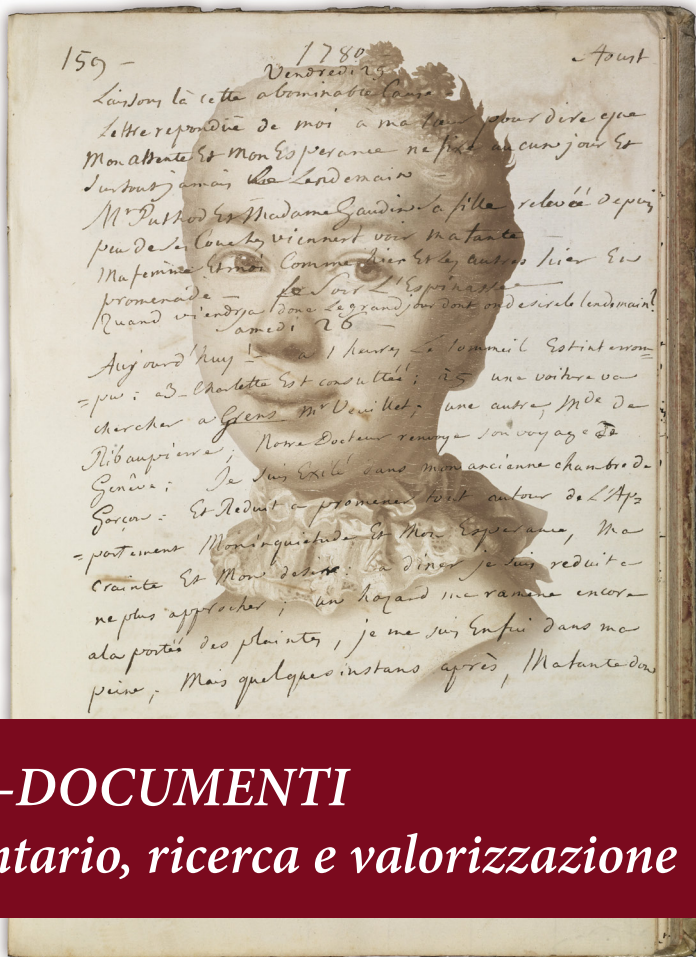 159 - 1780 Aoust
Vendredi 25
Laissons là cette abominable Cause
Lettre repondüe de moi a ma sœur pour dire que
Mon attente Et Mon Esperance ne fixe aucun jour Et
surtout jamais Le Lendemain
Mr Puthod Et Madame Gaudin sa fille relevéé depuis
peu de ses Couches viennent voir ma tante
Ma femme Et moi Comme hier Et les autres hier En
promenade - Le Soir L'Espinasse
Quand viendra donc Le grand jour dont on desire le lendemain?
Samedi 26 -
Aujourd'huy ! - a 1 heures Le Sommeil Est interrom=
=pu : a 3 - Charlotte Est consultéé ; 25 une voiture va
chercher a Grens Mr Veuillet ; une autre, Mde de
Ribaupierre ; Notre Docteur renvoye son voyage de
Genêve ; Je suis Exilé dans mon ancienne chambre de
Garçon : Et Reduit a promener tout autour de L'Ap=
=partement Mon inquietude Et Mon Esperance, Ma
crainte Et Mon desir : a diner je suis reduit a
ne plus approcher ; un hazard me ramene encore
a la portéé des plaintes, je me suis Enfui dans ma
peine ; Mais quelques instans après, Ma tante
–DOCUMENTI
ntario, ricerca e valorizzazione